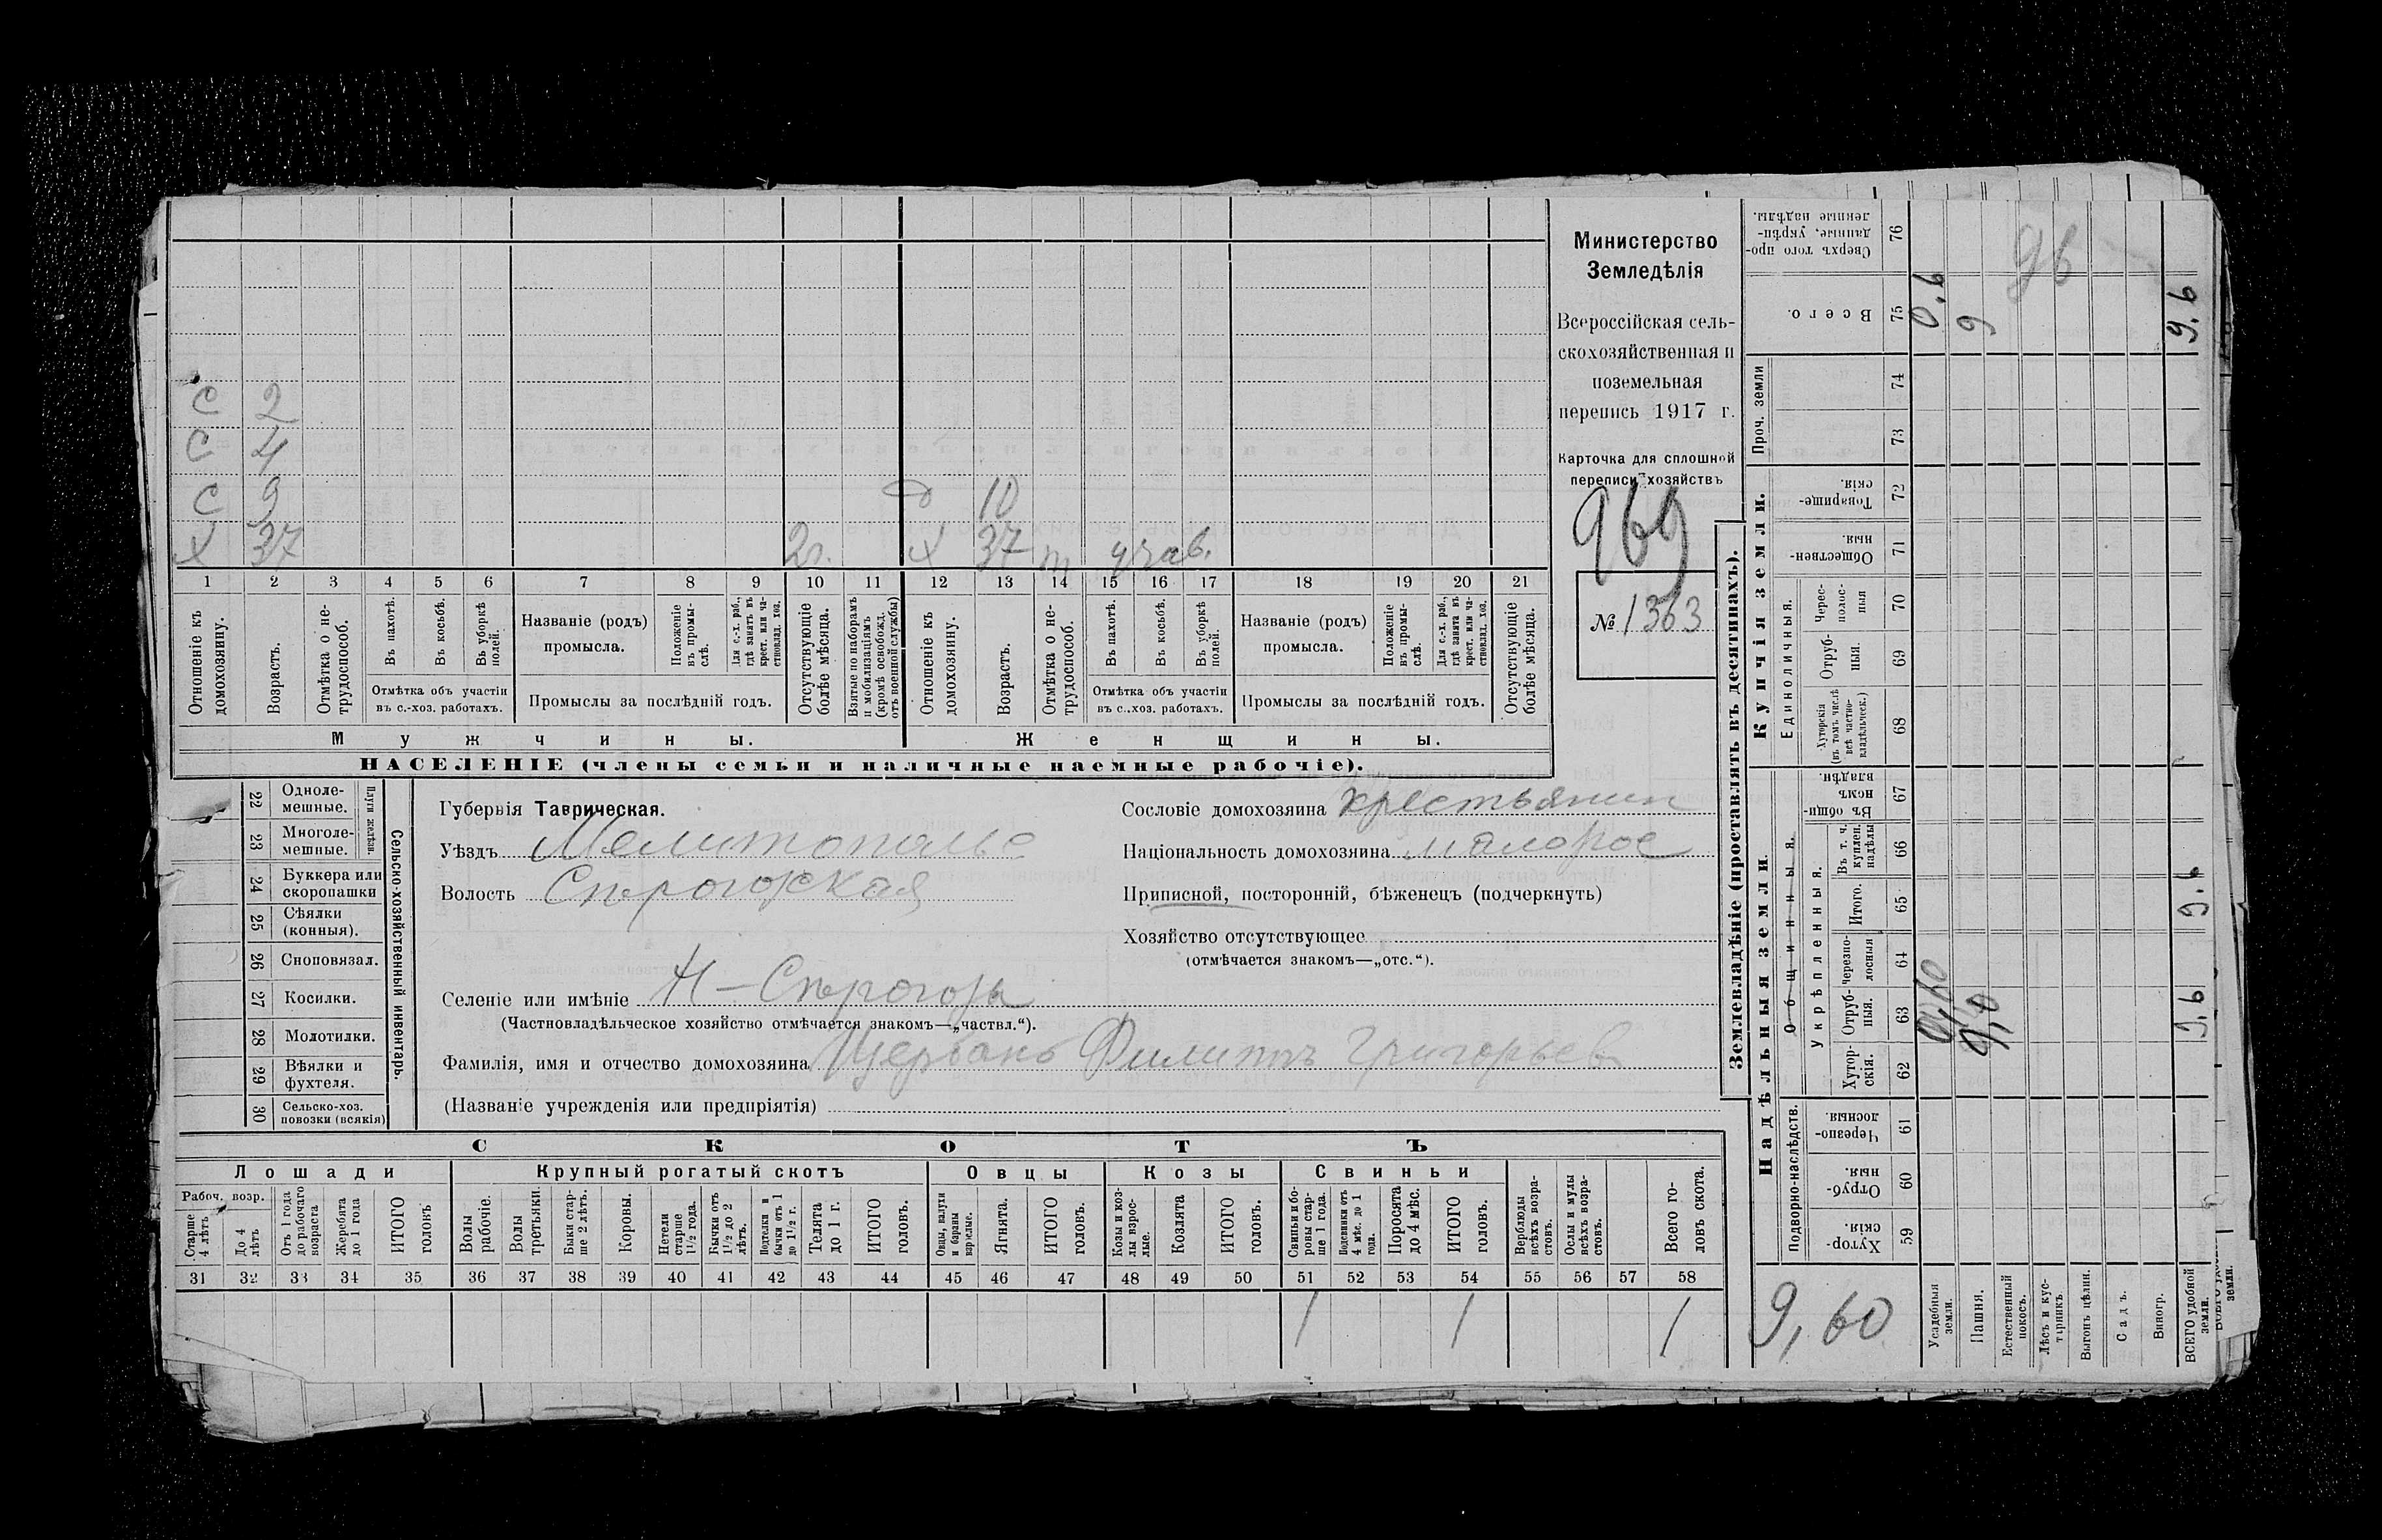 Министерство
Земледѣлія
Всероссійская сель-
скохозяйственная и
поземельная
перепись 1917 г.
Карточка для сплошной
переписи хозяйствъ
969
№ 1363
С 2
С 4
С 9 д 10
Х 37 2г. Х 37 т
1 2 3 4 5 6 7 8 9 10 11 12 13 14 15 16 17 18 19 20 21
Отношеніе къ домохозяину.
Возрастъ.
Отмѣтка о не-трудоспособ.
Въ пахотѣ.
Въ косьбѣ.
Въ уборкѣ полей.
Отмѣтка объ участіи
въ с.-хоз. работахъ.
Названіе (родъ)
промысла.
Положеніе въ промы-слѣ.
Для с.-х. раб., гдѣ занятъ въ крест. или ча-ствовлад. хоз.
Промыслы за послѣдній годъ.
Отсутствующіе болѣе мѣсяца.
Взятые по наборамъ и мобилизаціямъ (кромѣ освобожд. отъ военной службы)
Отношеніе къ домохозяину.
Возрастъ.
Отмѣтка о не-трудоспособ.
Въ пахотѣ.
Въ косьбѣ.
Въ уборкѣ полей.
Отмѣтка объ участіи
въ с.-хоз. работахъ.
Названіе (родъ)
промысла.
Положеніе въ промы-слѣ.
Для с.-х. раб., гдѣ занята въ крест. или ча-ствовлад. хоз.
Промыслы за послѣдній годъ.
Отсутствующіе болѣе мѣсяца.
Мужчины. Женщины.
НАСЕЛЕНІЕ (члены семьи и наличные наемные рабочіе).
Сельско-хозяйственный инвентарь.
Плуги желѣзн.
22 Одноле-мешные.
23 Многоле-мешные.
24 Буккера или скоропашки
25 Сѣялки (конныя).
26 Сноповязал.
27 Косилки.
28 Молотилки.
29 Вѣялки и фухтеля.
30 Сельско-хоз. повозки (всякія)
Губернія Таврическая.
Уѣздъ Мелитопольс
Волость Сѣрогозская
Сословіе домохозяина крестьянин
Національность домохозяина малорос
Приписной, посторонній, бѣженецъ (подчеркнуть)
Хозяйство отсутствующее
(отмѣчается знакомъ—„отс.“).
Селеніе или имѣніе Н-Сѣрогозы
(Частновладѣльческое хозяйство отмѣчается знакомъ—„частвл.“).
Фамилія, имя и отчество домохозяина Щербань Филиппъ Григорьев
(Названіе учрежденія или предпріятія)
СКОТЪ
Лошади Крупный рогатый скотъ Овцы Козы Свиньи
Рабоч. возр.
Старше 4 лѣтъ
До 4 лѣтъ
Отъ 1 года до рабочаго возраста
Жеребята до 1 года
ИТОГО головъ
Волы рабочіе.
Волы третьяки.
Быки стар-ше 2 лѣтъ.
Коровы.
Нетели старше 1½ года.
Бычки отъ 1½ до 2 лѣтъ.
Подтелки и бычки отъ 1 до 1½ г.
Телята до 1 г.
ИТОГО головъ.
Овцы, валухи и бараны взрослые.
Ягнята.
ИТОГО головъ.
Козы и коз-лы взрос-лые.
Козлята
ИТОГО головъ.
Свиньи и бо-ровы стар-ше 1 года.
Подсвинки отъ 4 мѣс. до 1 года.
Поросята до 4 мѣс.
ИТОГО головъ.
Верблюды всѣхъ возра-стовъ.
Ослы и мулы всѣхъ возра-стовъ.
Всего го-ловъ скота.
31 32 33 34 35 36 37 38 39 40 41 42 43 44 45 46 47 48 49 50 51 52 53 54 55 56 57 58
1 1 1
Землевладѣніе (проставлять въ десятинахъ).
Надѣльныя земли. Купчія земли.
Подворно-наслѣдств.
Общинныя.
Укрѣпленныя.
Единоличныя.
Проч. земли
59 Хутор-скія.
60 Отруб-ныя.
61 Черезпо-лосныя
62 Хутор-скія.
63 Отруб-ныя.
64 Черезпо-лосныя
65 Итого.
66 Въ т. ч. куплен. надѣлы
67 Въ общи-номъ владѣн.
68 Хуторскія (въ томъ числѣ всѣ частно-владѣльческ.)
69 Отруб-ныя.
70 Черес-полос-ныя
71 Обществен-ныя
72 Товарище-скія.
73
74
75 Всего.
76 Сверхъ того про-данные, укрѣп-ленные надѣлы.
Усадебныя земли.
Пашня.
Естественный покосъ.
Лѣсъ и кус-тарникъ
Выгонъ цѣлин.
Садъ.
Виногр.
ВСЕГО удобной земли.
9,60
0,60
9,0
9.6
9.6
0,6
9
96
9.6